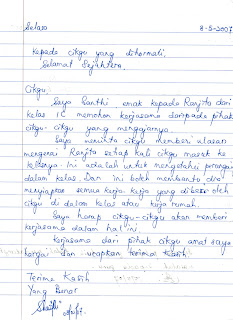 Selasa 8-5-2007
Kepada cikgu yang dihormati,
Selamat Sejahtera.
Cikgu,
Saya Santhi emak kepada Ranjita dari
kelas 1C memohon kerjasama daripada pihak
cikgu-cikgu yang mengajarnya.
Saya meminta cikgu memberi ulasan
mengenai Ranjita setiap kali cikgu masuk ke
kelasnya. Ini adalah untuk mengetahui perangai
dalam kelas. Dan ini boleh membantu dia
menyiapkan semua kerja-kerja yang diberi oleh
cikgu di dalam kelas atau kerja rumah.
Saya harap cikgu-cikgu akan memberi
kerjasama dalam hal ini.
Kerjasama dari pihak cikgu amat saya
hargai dan ucapkan terima kasih.
Terima Kasih
Yang Benar